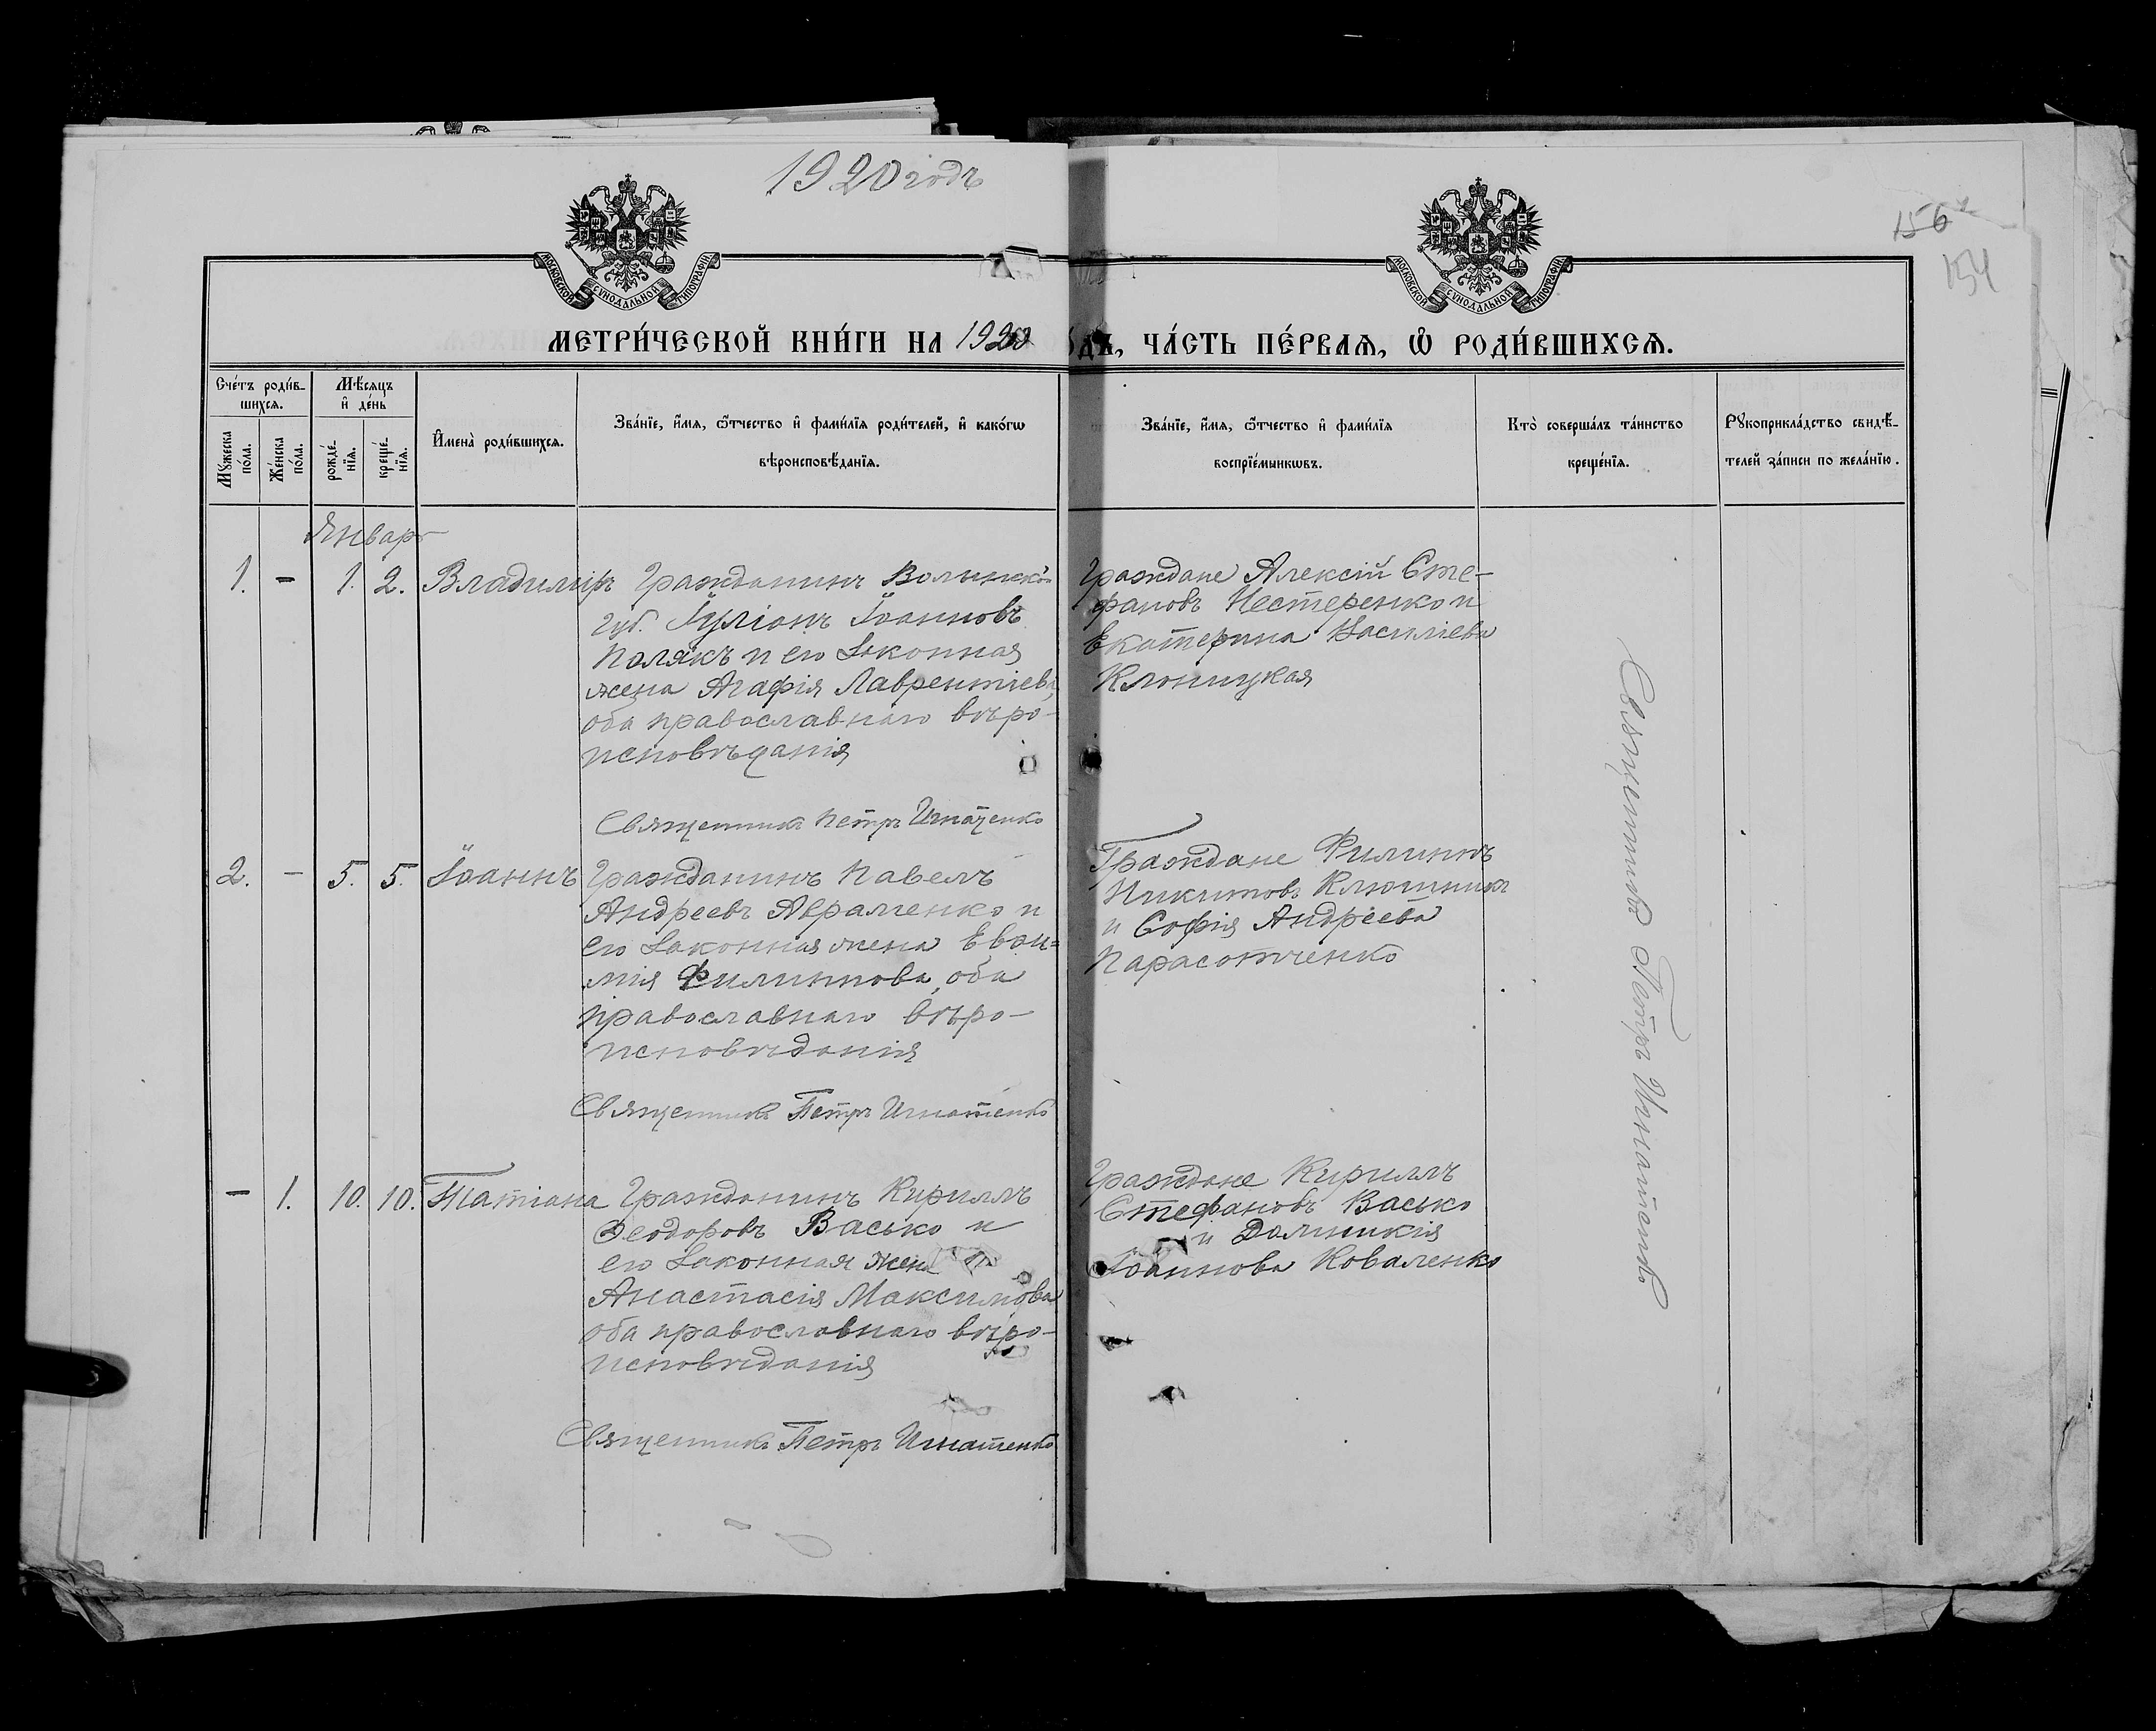 1920 годъ
156
154
МОСКОВСКОЙ СУНОДАЛЬНОЙ ТИПОГРАФІИ
МОСКОВСКОЙ СУНОДАЛЬНОЙ ТИПОГРАФІИ
МЕТРИ́ЧЕСКОЙ КНИ́ГИ НА 1920 ГО́ДЪ, ЧА́СТЬ ПЕ́РВАѦ, Ѡ҆ РОДИ́ВШИХСѦ.
Сче́тъ роди́в-
шихсѧ.
Мꙋжеска по́ла.
Же́нска по́ла.
Мѣ́сѧцъ и҆ де́нь
рожде́-нїѧ.
креще́-нїѧ.
И҆мена̀ роди́вшихсѧ.
Зва́нїе, и҆́мѧ, ѻ҆́тчество и҆ фами́лїѧ роди́телей, и҆ како́гѡ
вѣроисповѣ́данїѧ.
Зва́нїе, и҆́мѧ, ѻ҆́тчество и҆ фами́лїѧ
воспрїе́мникѡвъ.
Кто̀ соверша́лъ та́инство
креще́нїѧ.
Рꙋкоприкла́дство свидѣ́-
телей за́писи по жела́нїю.
Январь
1. - 1. 2. Владиміръ
Гражданинъ Волынской
губ. Іуліанъ Іоанновъ
Полякъ и его законная
жена Агафія Лаврентіева,
оба православнаго вѣро-
исповѣданія
Священникъ Петръ Игнатенко
Граждане Алексій Сте-
фановъ Нестеренко и
Екатерина Василіева
Клоницкая
2. - 5. 5. Іоаннъ
Гражданинъ Павелъ
Андреевъ Авраменко и
его законная жена Евѳи-
мія Филиппова, оба
православнаго вѣро-
исповѣданія
Священникъ Петръ Игнатенко
Граждане Филиппъ
Никитовъ Ключникъ
и Софія Андреева
Парасотченко
- 1. 10. 10. Татіана
Гражданинъ Кириллъ
Ѳеодоровъ Васько и
его законная жена
Анастасія Максимова
оба православнаго вѣро-
исповѣданія
Священникъ Петръ Игнатенко
Граждане Кириллъ
Стефановъ Васько
и Домникія
Іоаннова Коваленко
Священникъ Петръ Игнатенко